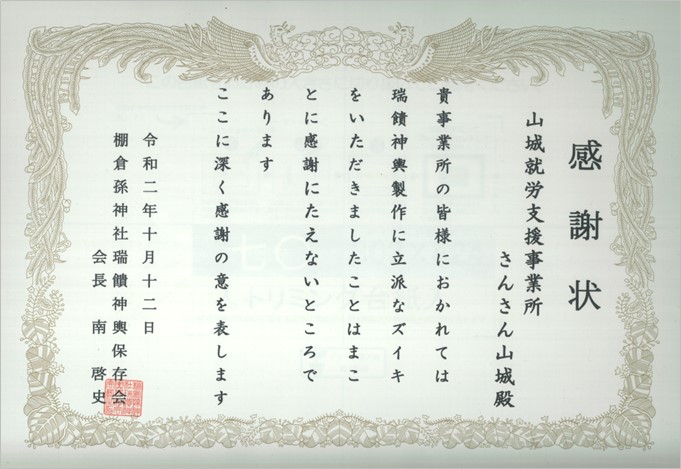 感謝状
山城就労支援事業所
さんさん山城殿
貴事業所の皆様におかれては
瑞饋神輿製作に立派なズイキ
をいただきましたことはまこ
とに感謝にたえないところで
あります
ここに深く感謝の意を表します
令和二年十月十二日
棚倉孫神社瑞饋神輿保存会
会長 南 啓史